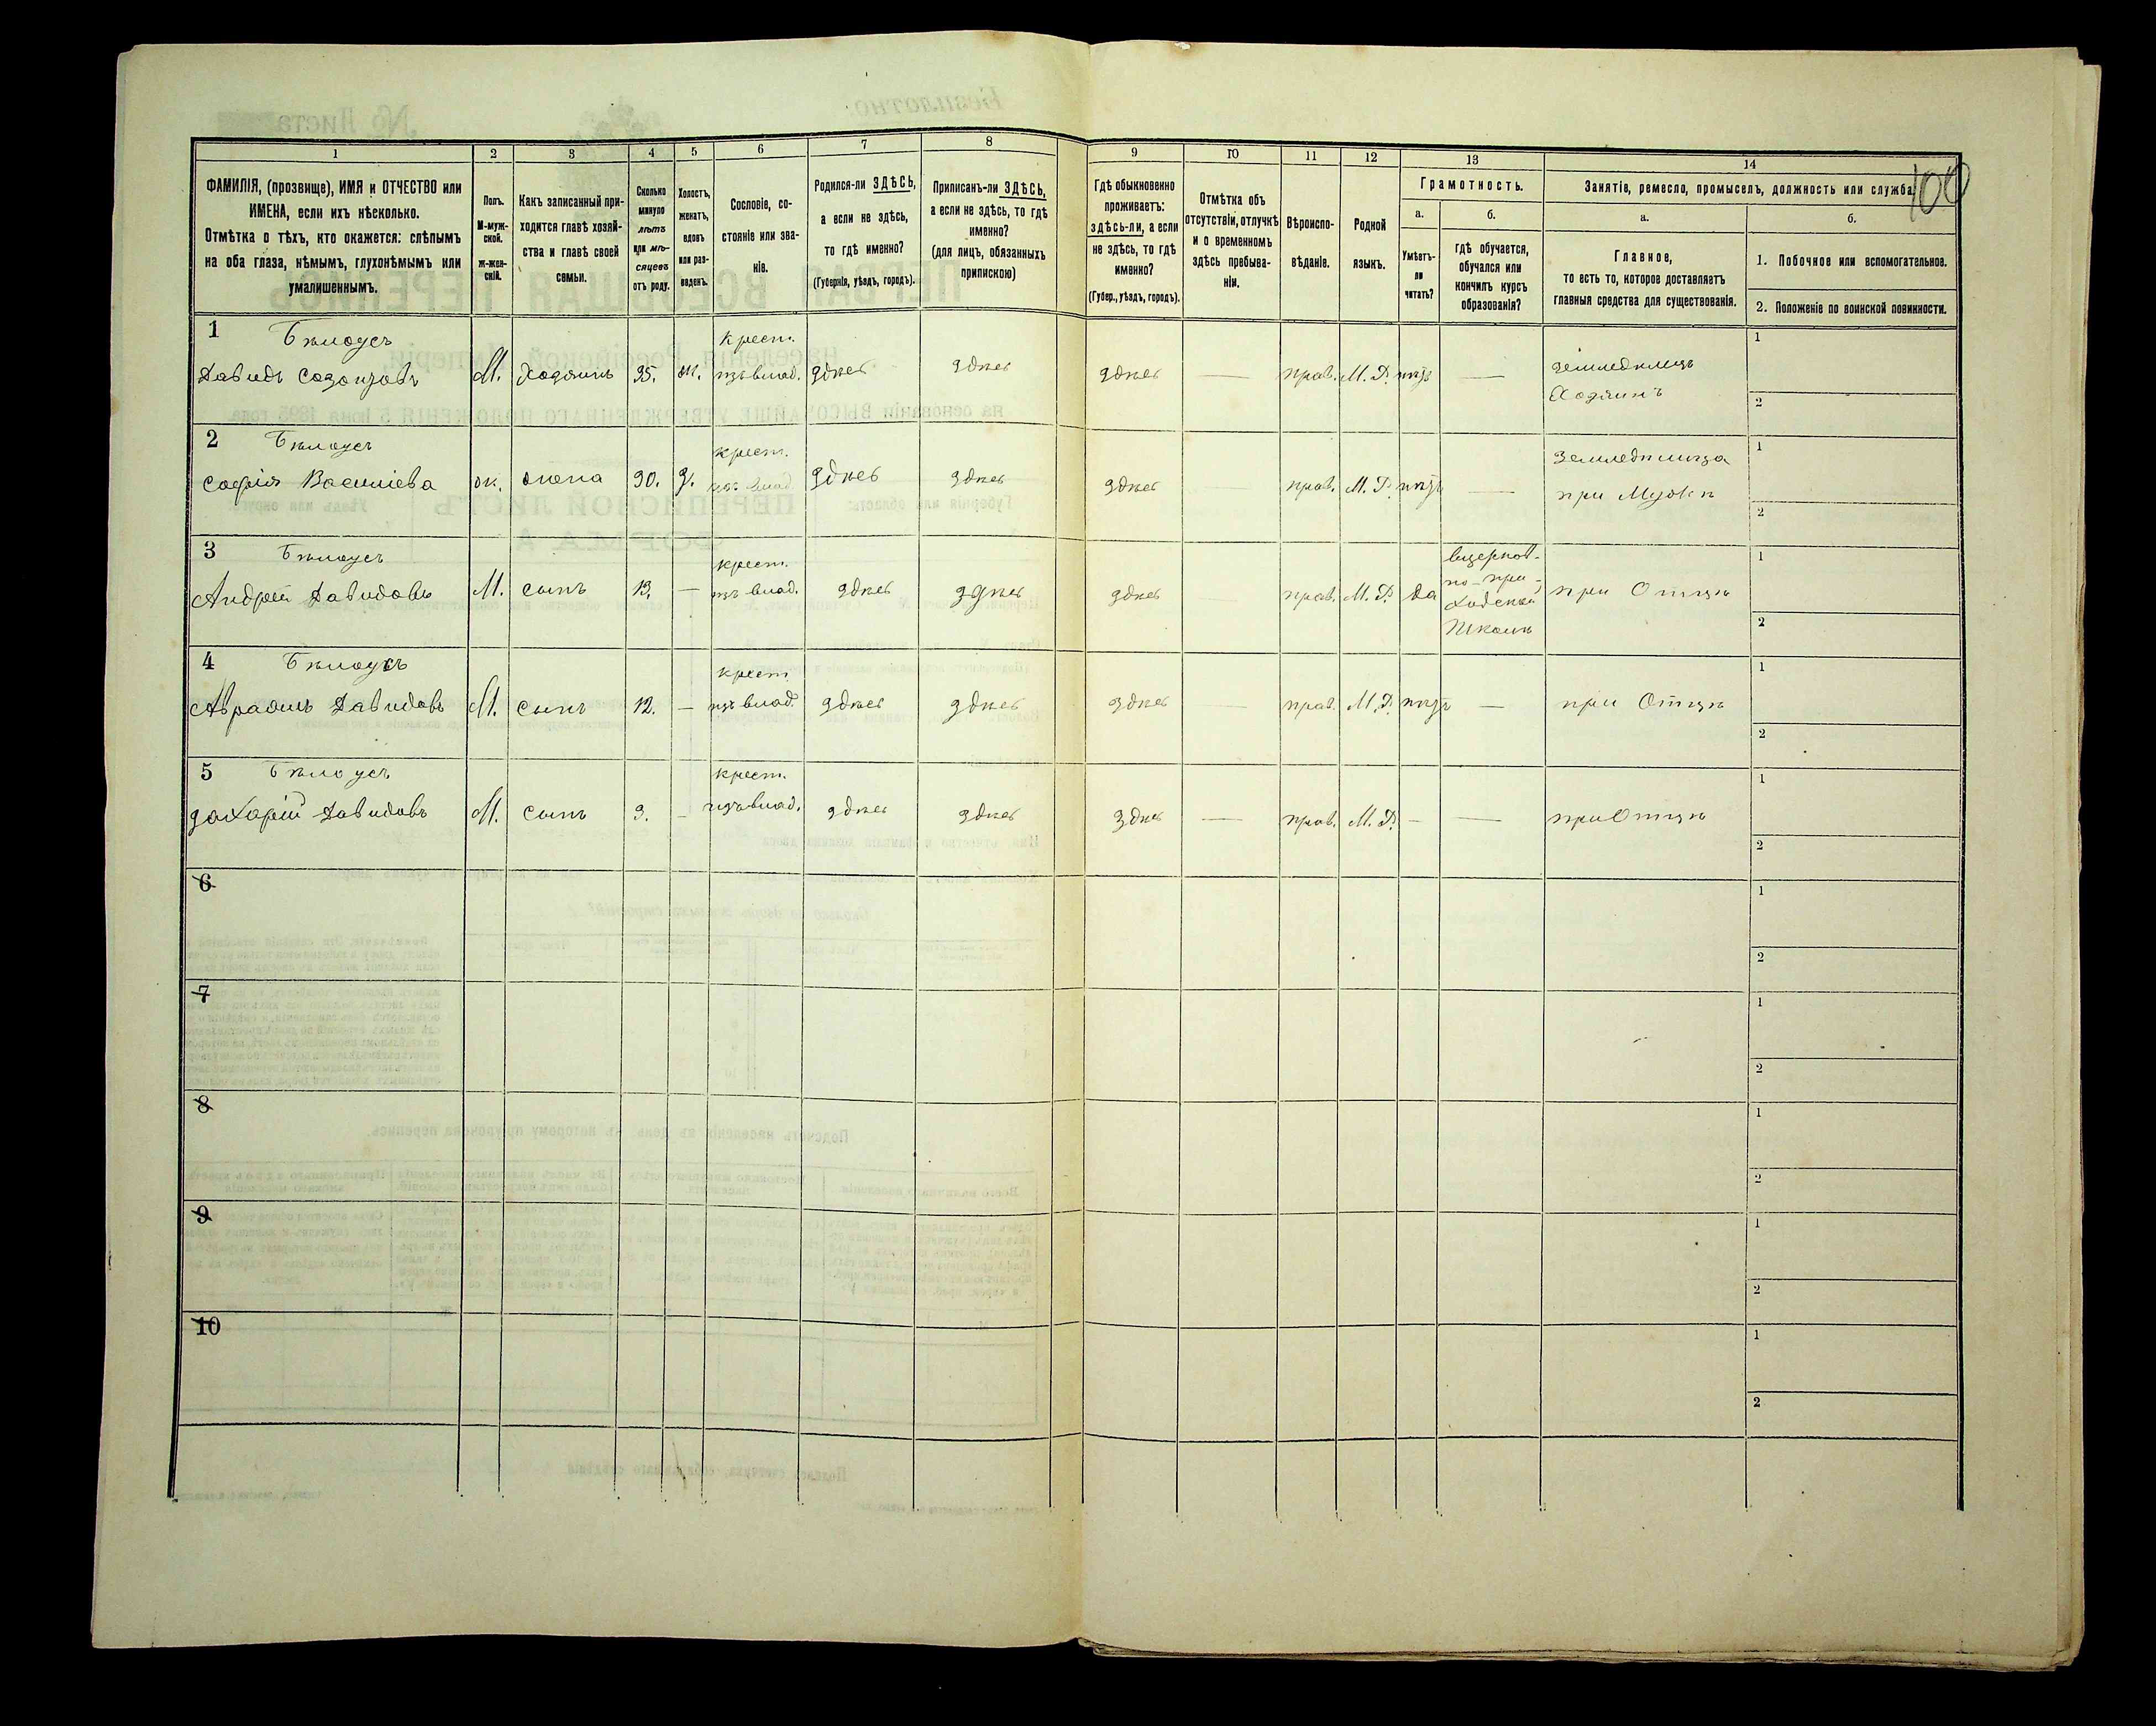 100
1 2 3 4 5 6 7 8 9 10 11 12 13 14
ФАМИЛІЯ, (прозвище), ИМЯ и ОТЧЕСТВО или
ИМЕНА, если ихъ нѣсколько.
Отмѣтка о тѣхъ, кто окажется: слѣпымъ
на оба глаза, нѣмымъ, глухонѣмымъ или
умалишеннымъ.
Полъ.
М-муж-
ской.
Ж-жен-
скій.
Какъ записанный при-
ходится главѣ хозяй-
ства и главѣ своей
семьи.
Сколько
минуло
лѣтъ
или мѣ-
сяцевъ
отъ роду.
Холостъ,
женатъ,
вдовъ
или раз-
веденъ.
Сословіе, со-
стояніе или зва-
ніе.
Родился-ли ЗДѢСЬ,
а если не здѣсь,
то гдѣ именно?
(Губернія, уѣздъ, городъ).
Приписанъ-ли ЗДѢСЬ,
а если не здѣсь, то гдѣ
именно?
(для лицъ, обязанныхъ
припискою)
Гдѣ обыкновенно
проживаетъ:
здѣсь-ли, а если
не здѣсь, то гдѣ
именно?
(Губер., уѣздъ, городъ).
Отмѣтка объ
отсутствіи, отлучкѣ
и о временномъ
здѣсь пребыва-
ніи.
Вѣроиспо-
вѣданіе.
Родной
языкъ.
Грамотность.
а.
Умѣетъ-
ли
читать?
б.
Гдѣ обучается,
обучался или
кончилъ курсъ
образованія?
Занятіе, ремесло, промыселъ, должность или служба.
а.
Главное,
то есть то, которое доставляетъ
главныя средства для существованія.
б.
1. Побочное или вспомогательное.
2. Положеніе по воинской повинности.
1 Бѣлоусъ
Давидъ Созонтовъ М. Хозяинъ 35. ж. Крест. изъ влад. здѣсь здѣсь здѣсь — прав. М. Р. нѣтъ — Земледѣлецъ Хозяинъ 1 2
2 Бѣлоусъ
Софія Василіева ж. жена 30. з. крест. изъ влад. здѣсь здѣсь здѣсь — прав. М. Р. нѣтъ — Земледѣлица при Мужѣ 1 2
3 Бѣлоусъ
Андрей Давидовъ М. сынъ 13. — крест. изъ влад. здѣсь здѣсь здѣсь — прав. М. Р. да вцерков-но-при-ходской Школѣ при Отцѣ 1 2
4 Бѣлоусъ
Авраамъ Давидовъ М. сынъ 12. — крест изъ влад. здѣсь здѣсь здѣсь — прав. М. Р. нѣтъ — при Отцѣ 1 2
5 Бѣлоусъ
Захарій Давидовъ М. сынъ 3. — крест. изъ влад. здѣсь здѣсь здѣсь — прав. М. Р. — — при Отцѣ 1 2
6 1 2
7 1 2
8 1 2
9 1 2
10 1 2